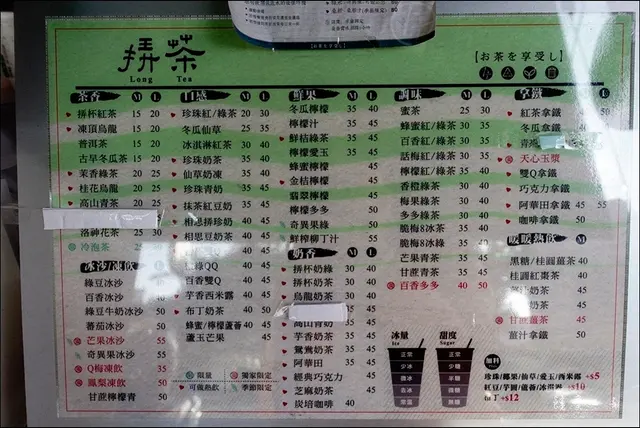 拼茶
Long Tea
【お茶を享受し】
茶香 M L
拼杯紅茶 15 20
凍頂烏龍 15 20
普洱茶 15 20
古早冬瓜茶 15 20
茉香綠茶 20 25
桂花烏龍 20 25
高山青茶 20 25
洛神花茶 25 30
冷泡茶
冰沙/凍飲 L
綠豆冰沙
百香冰沙 50
綠豆牛奶冰沙 50
蕃茄冰沙 50
芒果冰沙 55
奇異果冰沙 55
Q梅凍飲 35
鳳梨凍飲 50
甘蔗檸檬青 50
口感 M L
珍珠紅/綠茶 20 30
冬瓜仙草 25 35
冰淇淋紅茶 30 40
珍珠奶茶 35 45
仙草奶凍 35 45
珍珠青奶 35 45
抹茶紅豆奶 35 45
相思拼珍奶 40 45
相思豆奶茶 40 45
綠QQ 40 45
百香雙Q 40 45
芋香西米露 40 45
布丁奶茶 40 50
蜂蜜/檸檬蘆薈 40 45
蘆玉芒果 45
限量
獨家限定
可做熱飲
季節限定
鮮果 M L
冬瓜檸檬 35 40
檸檬汁 35 45
鮮桔綠茶 35 45
檸檬愛玉 35 45
蜂蜜檸檬 45
金桔檸檬 45
翡翠檸檬 45
檸檬多多 50
奇異果綠 50
鮮榨柳丁汁 55
奶香 M L
拼杯奶綠 30 40
拼杯奶茶 30 40
烏龍奶茶 30 40
高山青奶
芋香奶茶 35 45
鴛鴦奶茶 35 45
阿華田 35 45
經典巧克力 45
芝麻奶茶 35 45
炭培咖啡 40
調味 M L
蜜茶 25 30
蜂蜜紅/綠茶 30 40
百香紅/綠茶 30 40
話梅紅/綠茶 30 40
香橙綠茶 30 40
梅果綠茶 30 40
多多綠茶 30 40
脆梅8冰茶 35 45
脆梅8冰綠 35 45
芒果青茶 35 45
甘蔗青茶 35 45
百香多多 40 50
冰量 Ice
正常
少冰
微冰
去冰
常溫
甜度 Sugar
正常
少糖
半糖
微糖
無糖
拿鐵 M L
紅茶拿鐵 50
冬瓜拿鐵
天心玉漿
雙Q拿鐵
巧克力拿鐵
阿華田拿鐵 45 55
咖啡拿鐵 50
暖暖熱飲 M L
黑糖/桂圓薑茶 30 40
桂圓紅棗茶 30 40
奶茶 45
甘蔗薑茶 45
薑汁拿鐵 50
加料
珍珠/椰果/仙草/愛玉/西米露 +$5
紅豆/芋圓/蘆薈/冰淇淋 +$10
布丁 +$12